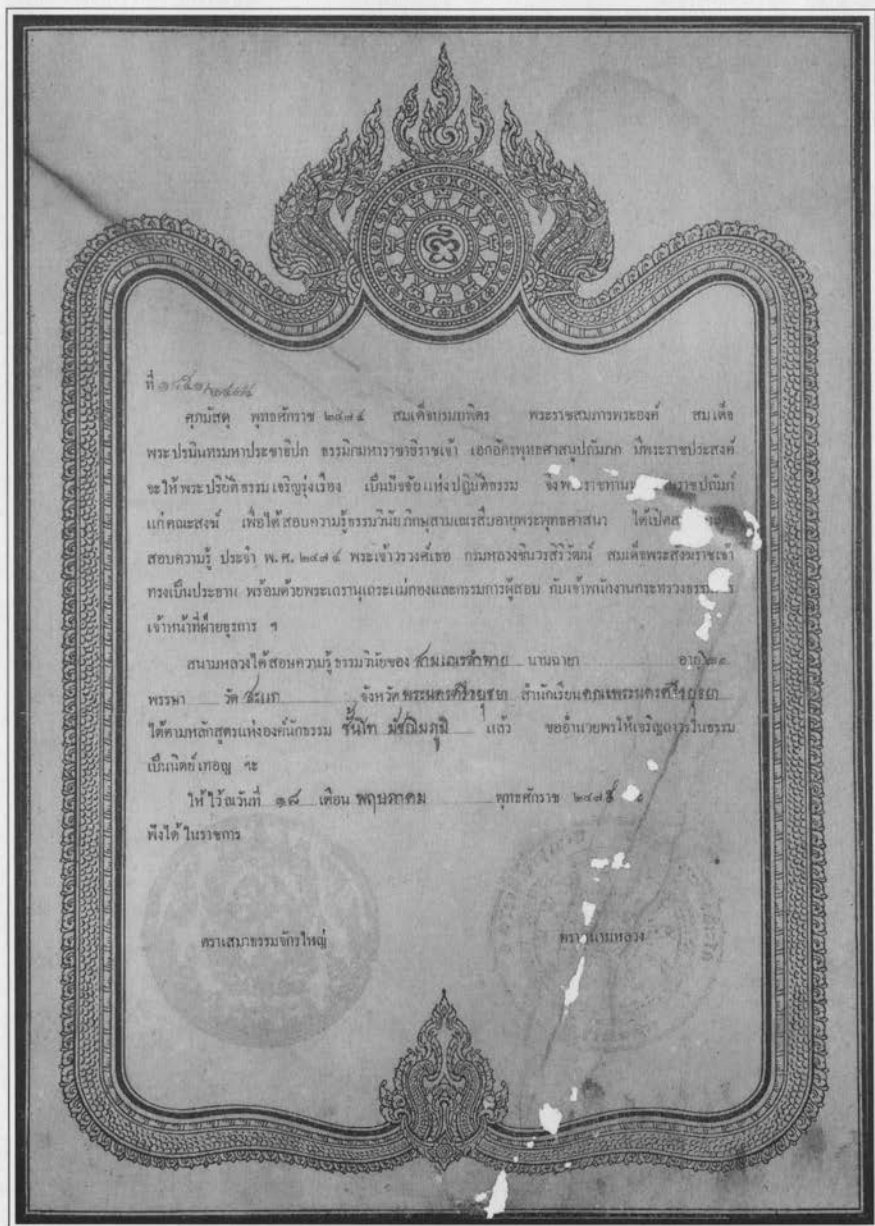 ที่
ศุภมัสดุ พุทธศักราช ๒๔๗๔ สมเด็จบรมบพิตร พระราชสมภารพระองค์ สมเด็จ
พระปรมินทรมหาประชาธิปก ธรรมิกมหาราชาธิราชเจ้า เอกอัครพุทธศาสนูปถัมภก มีพระราชประสงค์
จะให้พระปริยัติธรรมเจริญรุ่งเรือง เป็นปัจจัยแห่งปฏิบัติธรรม
แก่คณะสงฆ์ เพื่อได้สอบความรู้ธรรมวินัยภิกษุสามเณรสืบอายุพระพุทธศาสนา ได้เปิด
สอบความรู้ ประจำ พ.ศ. ๒๔๗๔ พระเจ้าวรวงศ์เธอ กรมหลวงชินวรสิริวัฒน์ สมเด็จพระสังฆราชเจ้า
ทรงเป็นประธาน พร้อมด้วยพระเถรานุเถระแม่กองและกรรมการผู้สอบ กับเจ้าพนักงานกระทรวง
เจ้าหน้าที่ฝ่ายธุรการ ฯ
สนามหลวงได้สอบความรู้ธรรมวินัยของ สามเณรลำพาย นามฉายา อายุ
พรรษา วัด สะแก จังหวัด พระนครศรีอยุธยา สำนักเรียน คณะพระนครศรีอยุธยา
ได้ตามหลักสูตรแห่งองค์นักธรรม ชั้นโท มัชฌิมภูมิ แล้ว ขออำนวยพรให้เจริญถาวรในธรรม
เป็นนิตย์เทอญ ฯะ
ให้ไว้ณวันที่ ๑๘ เดือน พฤษภาคม พุทธศักราช
พึงได้ในราชการ
ตราเสมาธรรมจักรใหญ่
ตราสนามหลวง